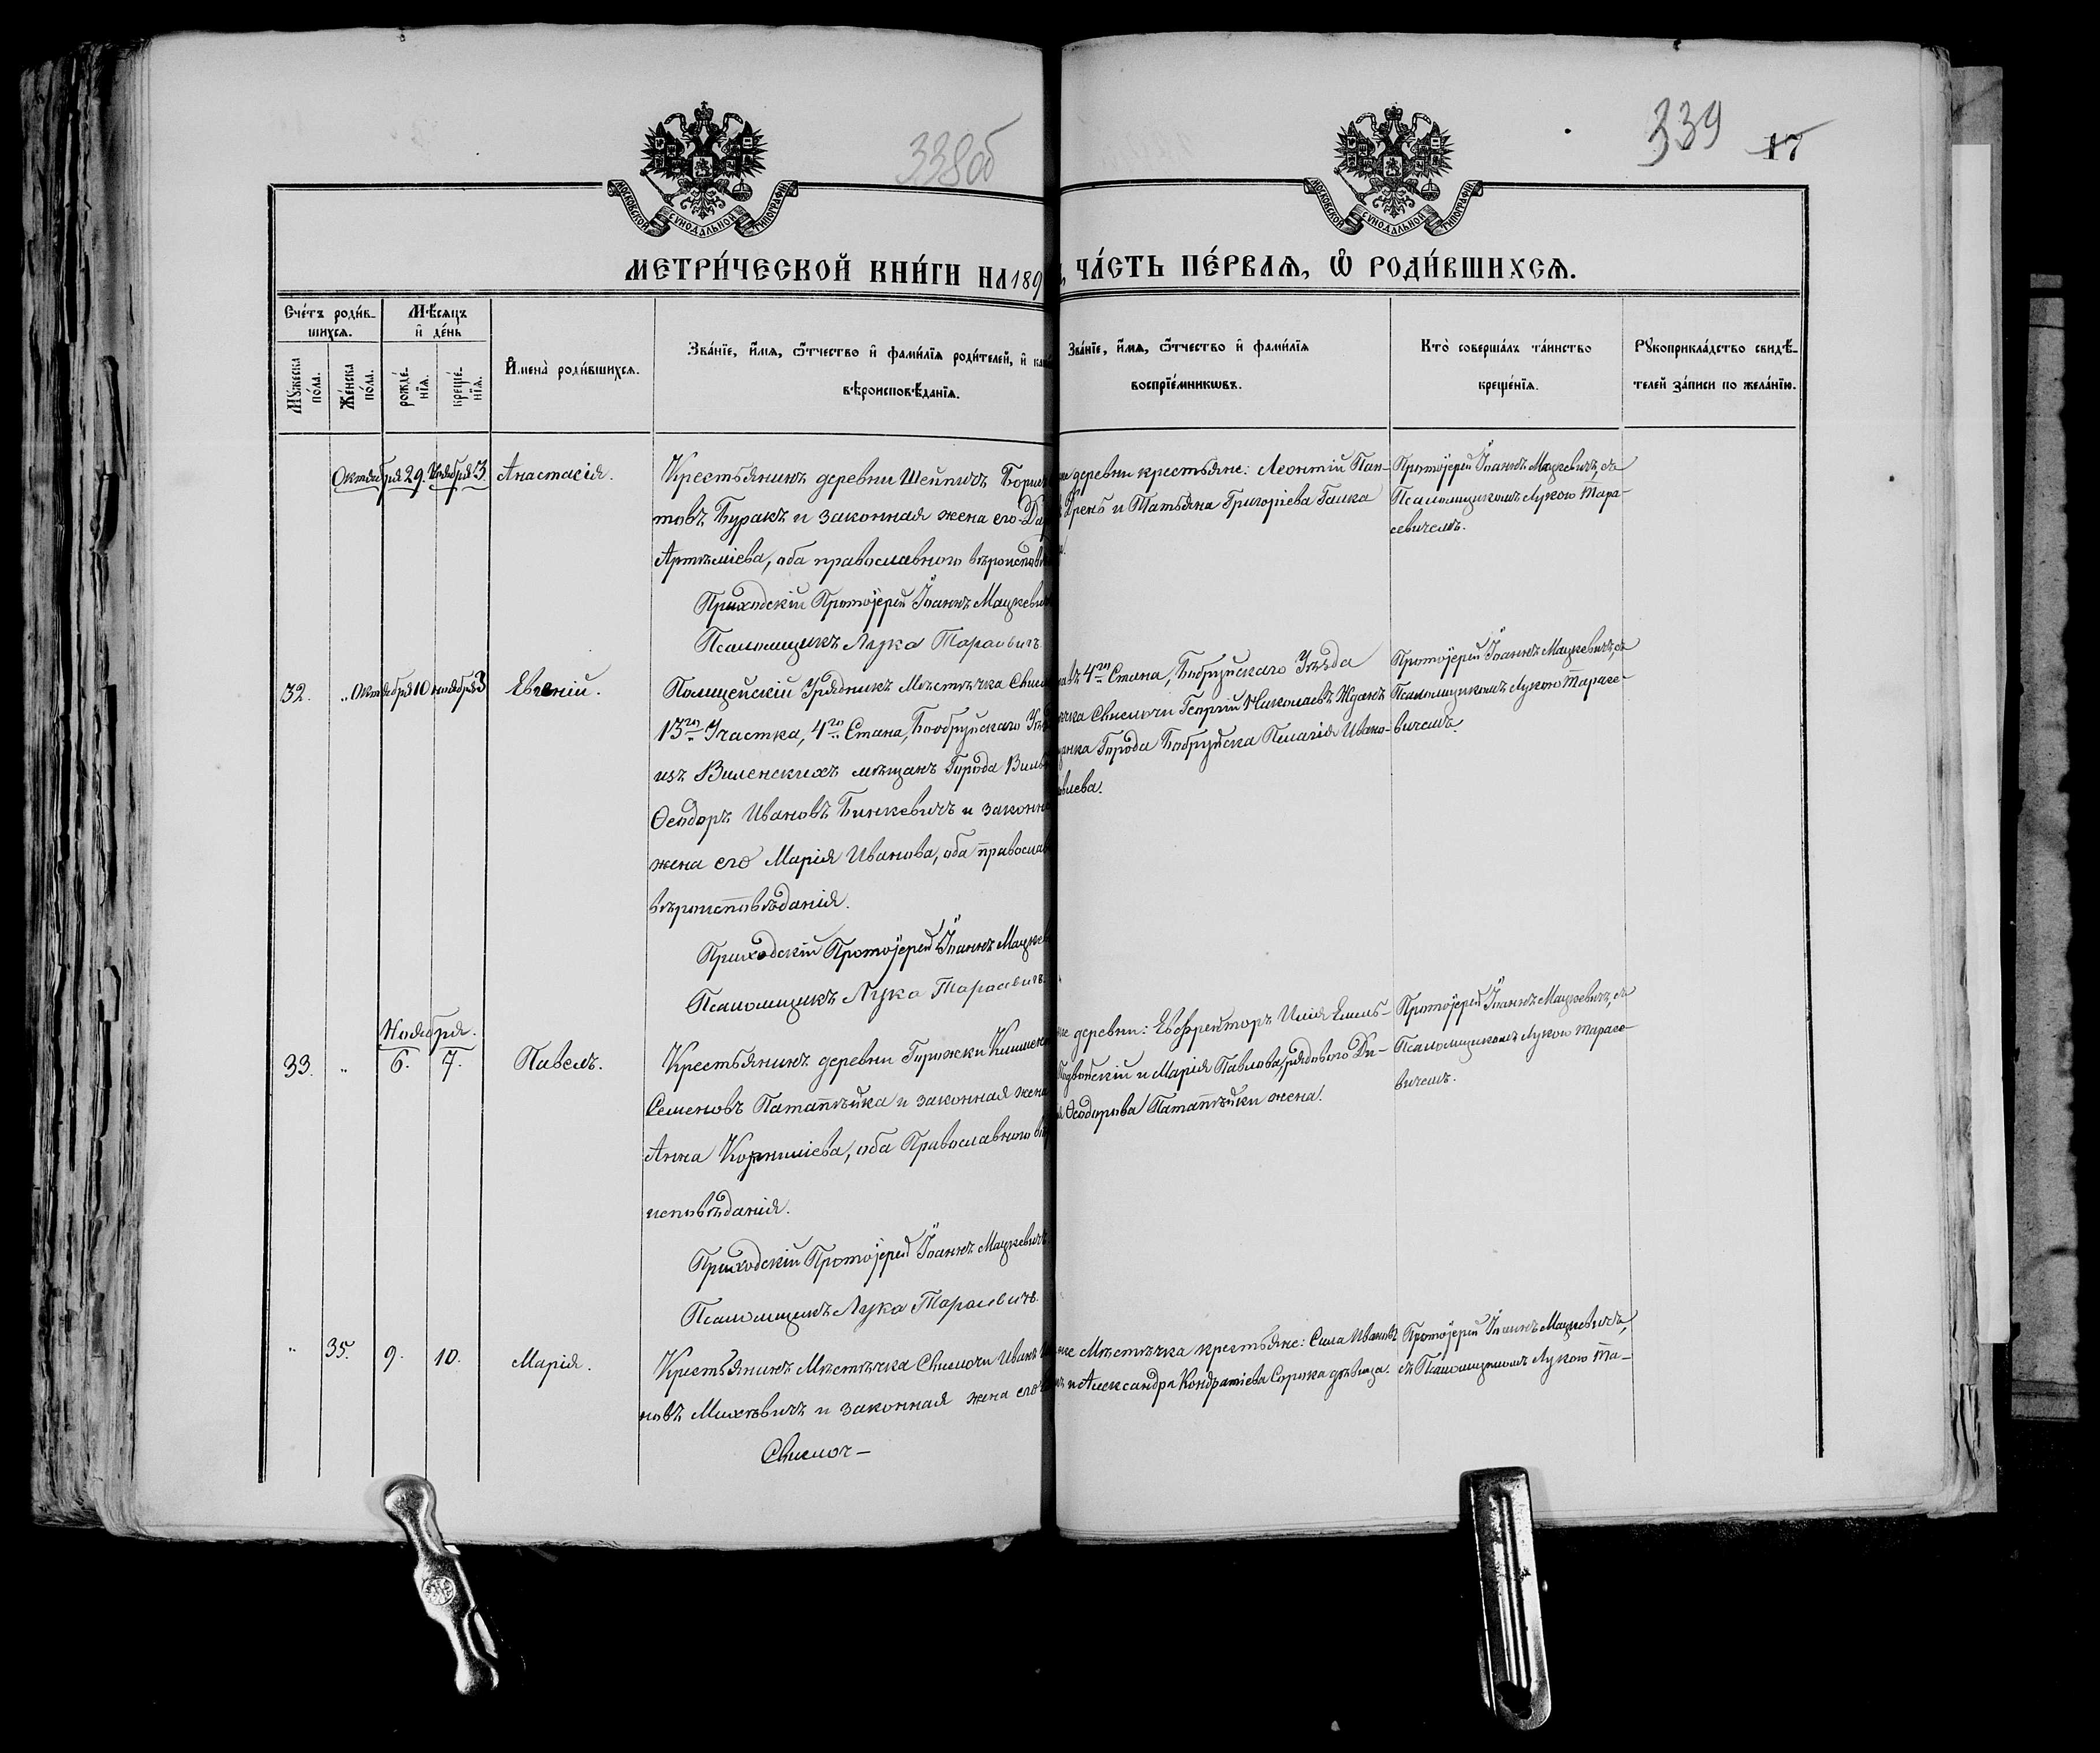 338об
339
17
МОСКОВСКОЙ СУНОДАЛЬНОЙ ТИПОГРАФІИ
МОСКОВСКОЙ СУНОДАЛЬНОЙ ТИПОГРАФІИ
МЕТРИ́ЧЕСКОЙ КНИ́ГИ НА 189
ЧА́СТЬ ПЕ́РВАЯ, Ѽ РОДИ́ВШИХСЯ.
Сче́тъ роди́в-
шихся.
Мѣ́сяцъ
и҆ де́нь
Мꙋжеска
по́ла.
Же́нска
по́ла.
рожде́-
нїѧ.
креще́-
нїѧ.
И҆мена̀ роди́вшихсѧ.
Зва́нїе, и҆́мѧ, ѻ҆́тчество и҆ фами́лїѧ роди́телей, и҆ как
вѣроисповѣ́данїѧ.
Зва́нїе, и҆́мѧ, ѻ҆́тчество и҆ фами́лїѧ
воспрїе́мникѡвъ.
Кто̀ соверша́лъ та́инство
креще́нїѧ.
Рꙋкоприкла́дство свидѣ́-
телей за́писи по жела́нїю.
Октября 29. Ноября 3.
Анастасія.
Крестьянинъ деревни Шейпичъ Борис
товъ Буракъ и законная жена его Да
Артемі́ева, оба православнаго вѣроисповѣ
Приходскій Протоіерей Іоаннъ Мацкевич
Псаломщикъ Лука Тарасевичъ
деревни крестьяне: Леонтій Пан-
Грень и Татьяна Григоріева Галка
Протоіерей Іоаннъ Мацкевичъ, съ
Псаломщикомъ Лукою Тара-
севичемъ.
32. „ Октября 10 ноября 3
Евгеній.
Полицейскій Урядникъ Мѣстечка Свисло
13го Участка, 4го Стана, Бобруйскаго Уѣз
изъ Виленскихъ мѣщанъ Города Виль
Ѳеодоръ Ивановъ Бинкевичъ и законн
жена его Марія Иванова, оба православ
вѣроисповѣданія.
Приходскій Протоіерей Іоаннъ Мацкев
Псаломщикъ Лука Тарасевичъ
4го Стана, Бобруйскаго Уѣзда
ечка Свислочи Георгій Николаевъ Жданъ
анка Города Бобруйска Пелагія Ивано-
Протоіерей Іоаннъ Мацкевичъ, съ
Псаломщикомъ Лукою Тарасе-
вичемъ.
Ноября.
33. „ 6. 7.
Павелъ.
Крестьянинъ деревни Горожки
Семеновъ Патапѣйка и законная жена
Анна Корниліева, оба Православнаго вѣр
исповѣданія.
Приходскій Протоіерей Іоаннъ Мацкевичъ
Псаломщикъ Лука Тарасевичъ.
деревни: Евфрейторъ Илія Емель-
Подвойскій и Марія Павлова, рядового Ди-
Ѳеодорова Патапѣйки жена.
Протоіерей Іоаннъ Мацкевичъ, съ
Псаломщикомъ Лукою Тарасе-
вичемъ.
„ 35. 9. 10.
Марія.
Крестьянинъ Мѣстечка Свислочи Иванъ
новъ Михнѣвичъ и законная жена его
Свислоч-
Мѣстечка крестьяне: Сила Ивановъ
и Александра Кондратіева Сорока дѣвица.
Протоіерей Іоаннъ Мацкевичъ,
съ Псаломщикомъ Лукою Та-